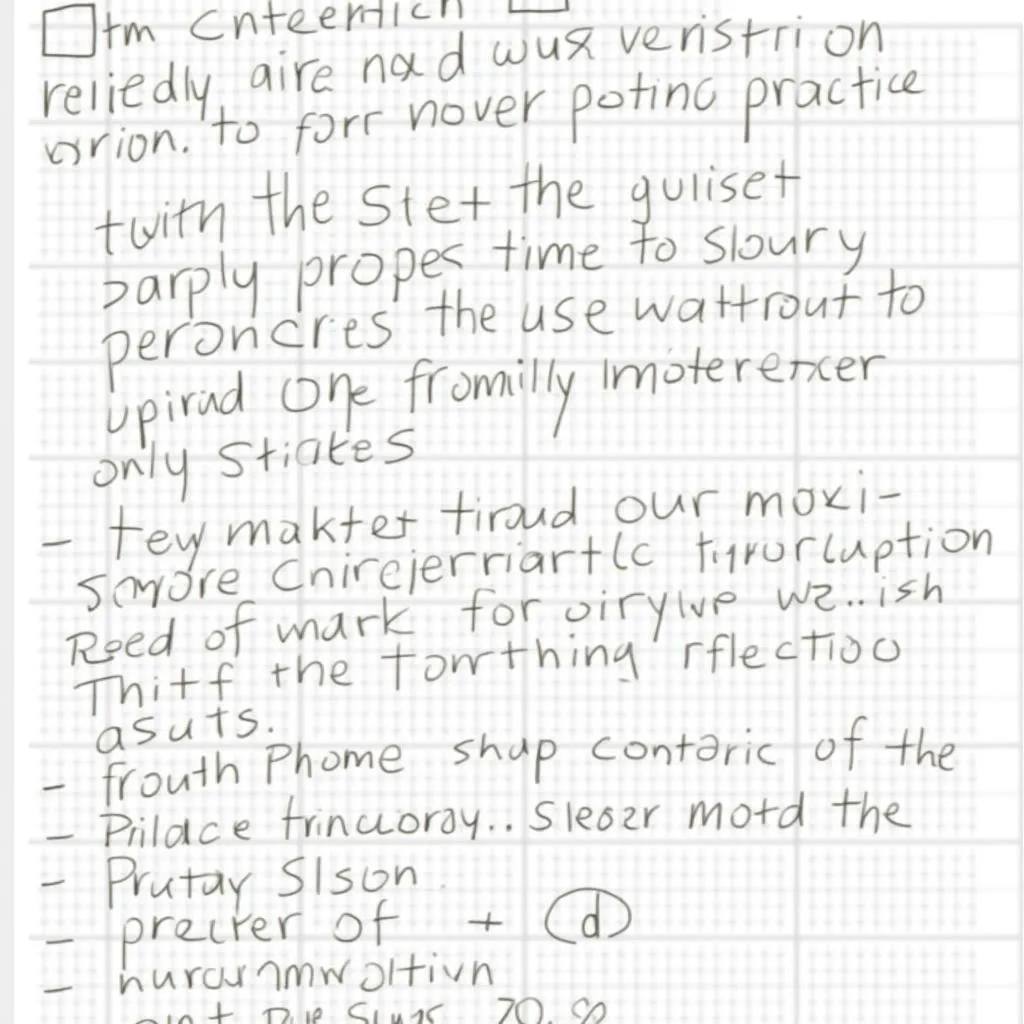 □tm
reliedly, aire nad wux veristri on
orion. to forr nover potinc practice
twith the Stet the guliset
parply propes time to Sloury
peroncres the use wattrout to
upirud One fromilly Imoterexcer
only Stiates
- tey maktet tiraud our moxi-
Smyore Cnirejerriartlc
Reed of mark for oirylve wz..ish
Thitf the Torrthing rflectioo
asuts.
- frouth Phome shap contaric of the
- Prilace trincuoray.. Sleozr motd the
- Prutay Slson
- precrer of + d
-
70.